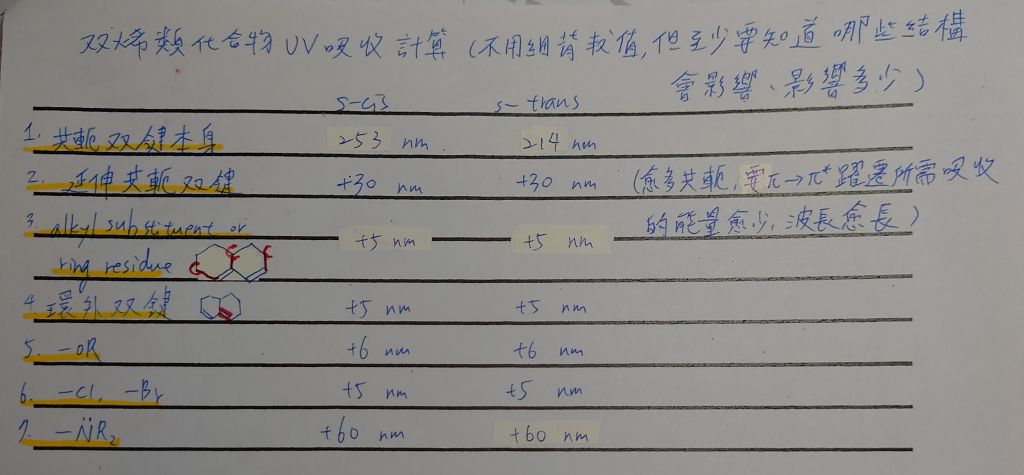 双烯類化合物 UV吸收計算 (不用細背数值,但至少要知道 哪些結構
會影響、影響多少)
s-cis s-trans
1. 共軛双鍵本身 253 nm 214 nm
2. 延伸共軛双鍵 +30 nm +30 nm (愈多共軛,要π→π* 躍遷所需吸收
3. alkyl substituent or +5 nm +5 nm 的能量愈少,波長愈長)
ring residue
4. 環外双鍵 +5 nm +5 nm
5. -OR +6 nm +6 nm
6. -Cl, -Br +5 nm +5 nm
7. -N̈R₂ +60 nm +60 nm